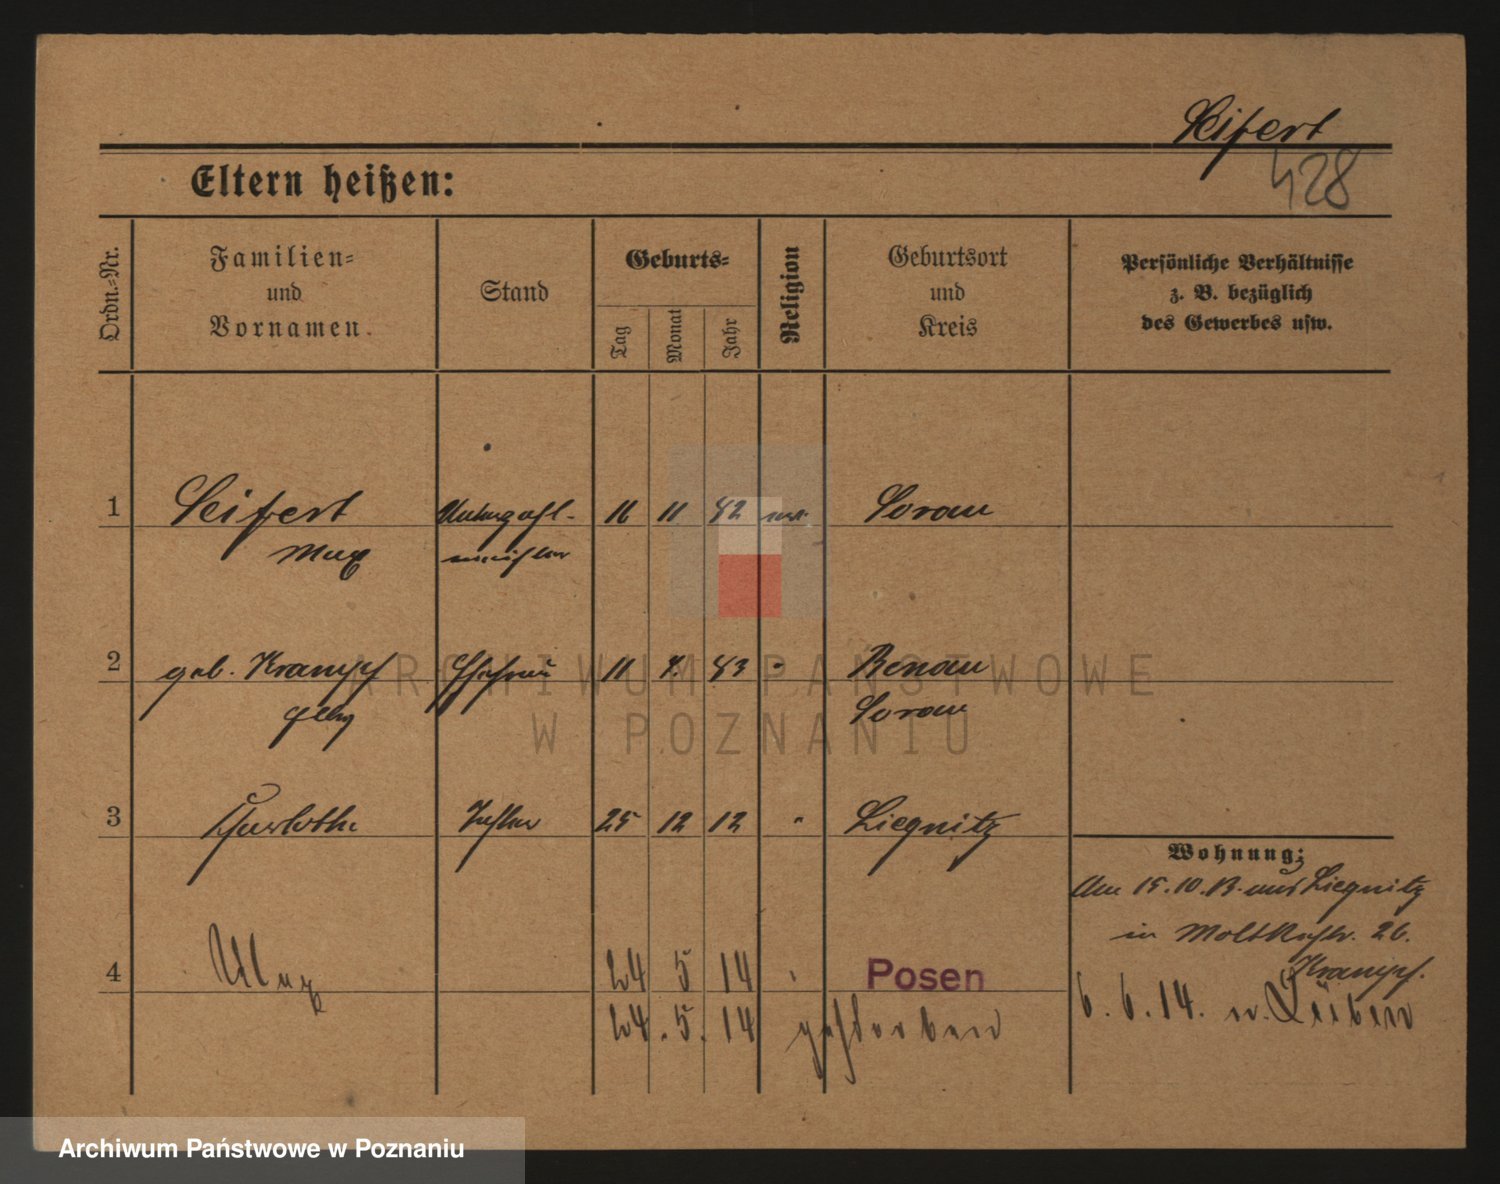 Seifert
428
Eltern heißen:
Ordn.-Nr.
Familien-
und
Vornamen.
Stand
Geburts-
Tag
Monat
Jahr
Religion
Geburtsort
und
Kreis
Persönliche Verhältnisse
z. B. bezüglich
des Gewerbes usw.
1 Seifert Unterzahl- 11 82 Sorau
Max meister
2 geb. Krampf Ehefrau 11 83 " Benau
Elly Sorau
3 Charlotte Tochter 25 12 12 " Liegnitz
Wohnung:
Am 15.10.13. aus Liegnitz
in Moltkestr. 26.
Krampf.
4 Max 24 5 14 Posen
24. 5. 14 gestorben
6. 6. 14. n. Lüben
ARCHIWUM PAŃSTWOWE
W POZNANIU
Archiwum Państwowe w Poznaniu